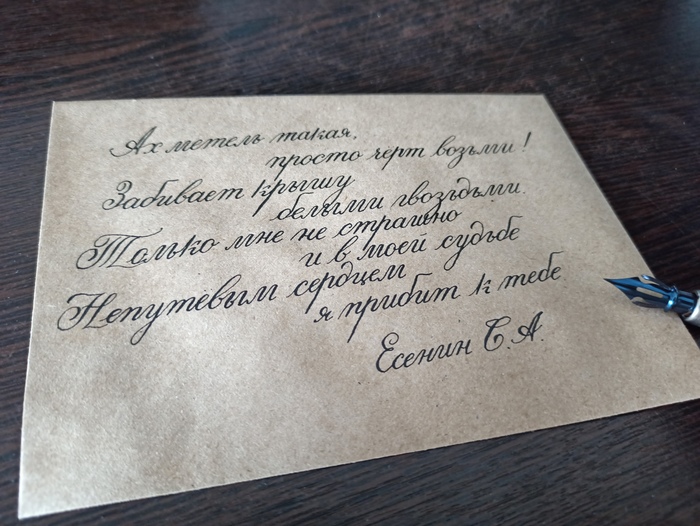 Ах метель такая,
просто черт возьми!
Забивает крышу
белыми гвоздьми.
Только мне не страшно
и в моей судьбе
Непутевым сердцем
я прибит к тебе
Есенин С.А.